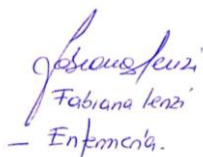 Fabiana Lenzi
Fabiana Lenzi
- Enfermería.